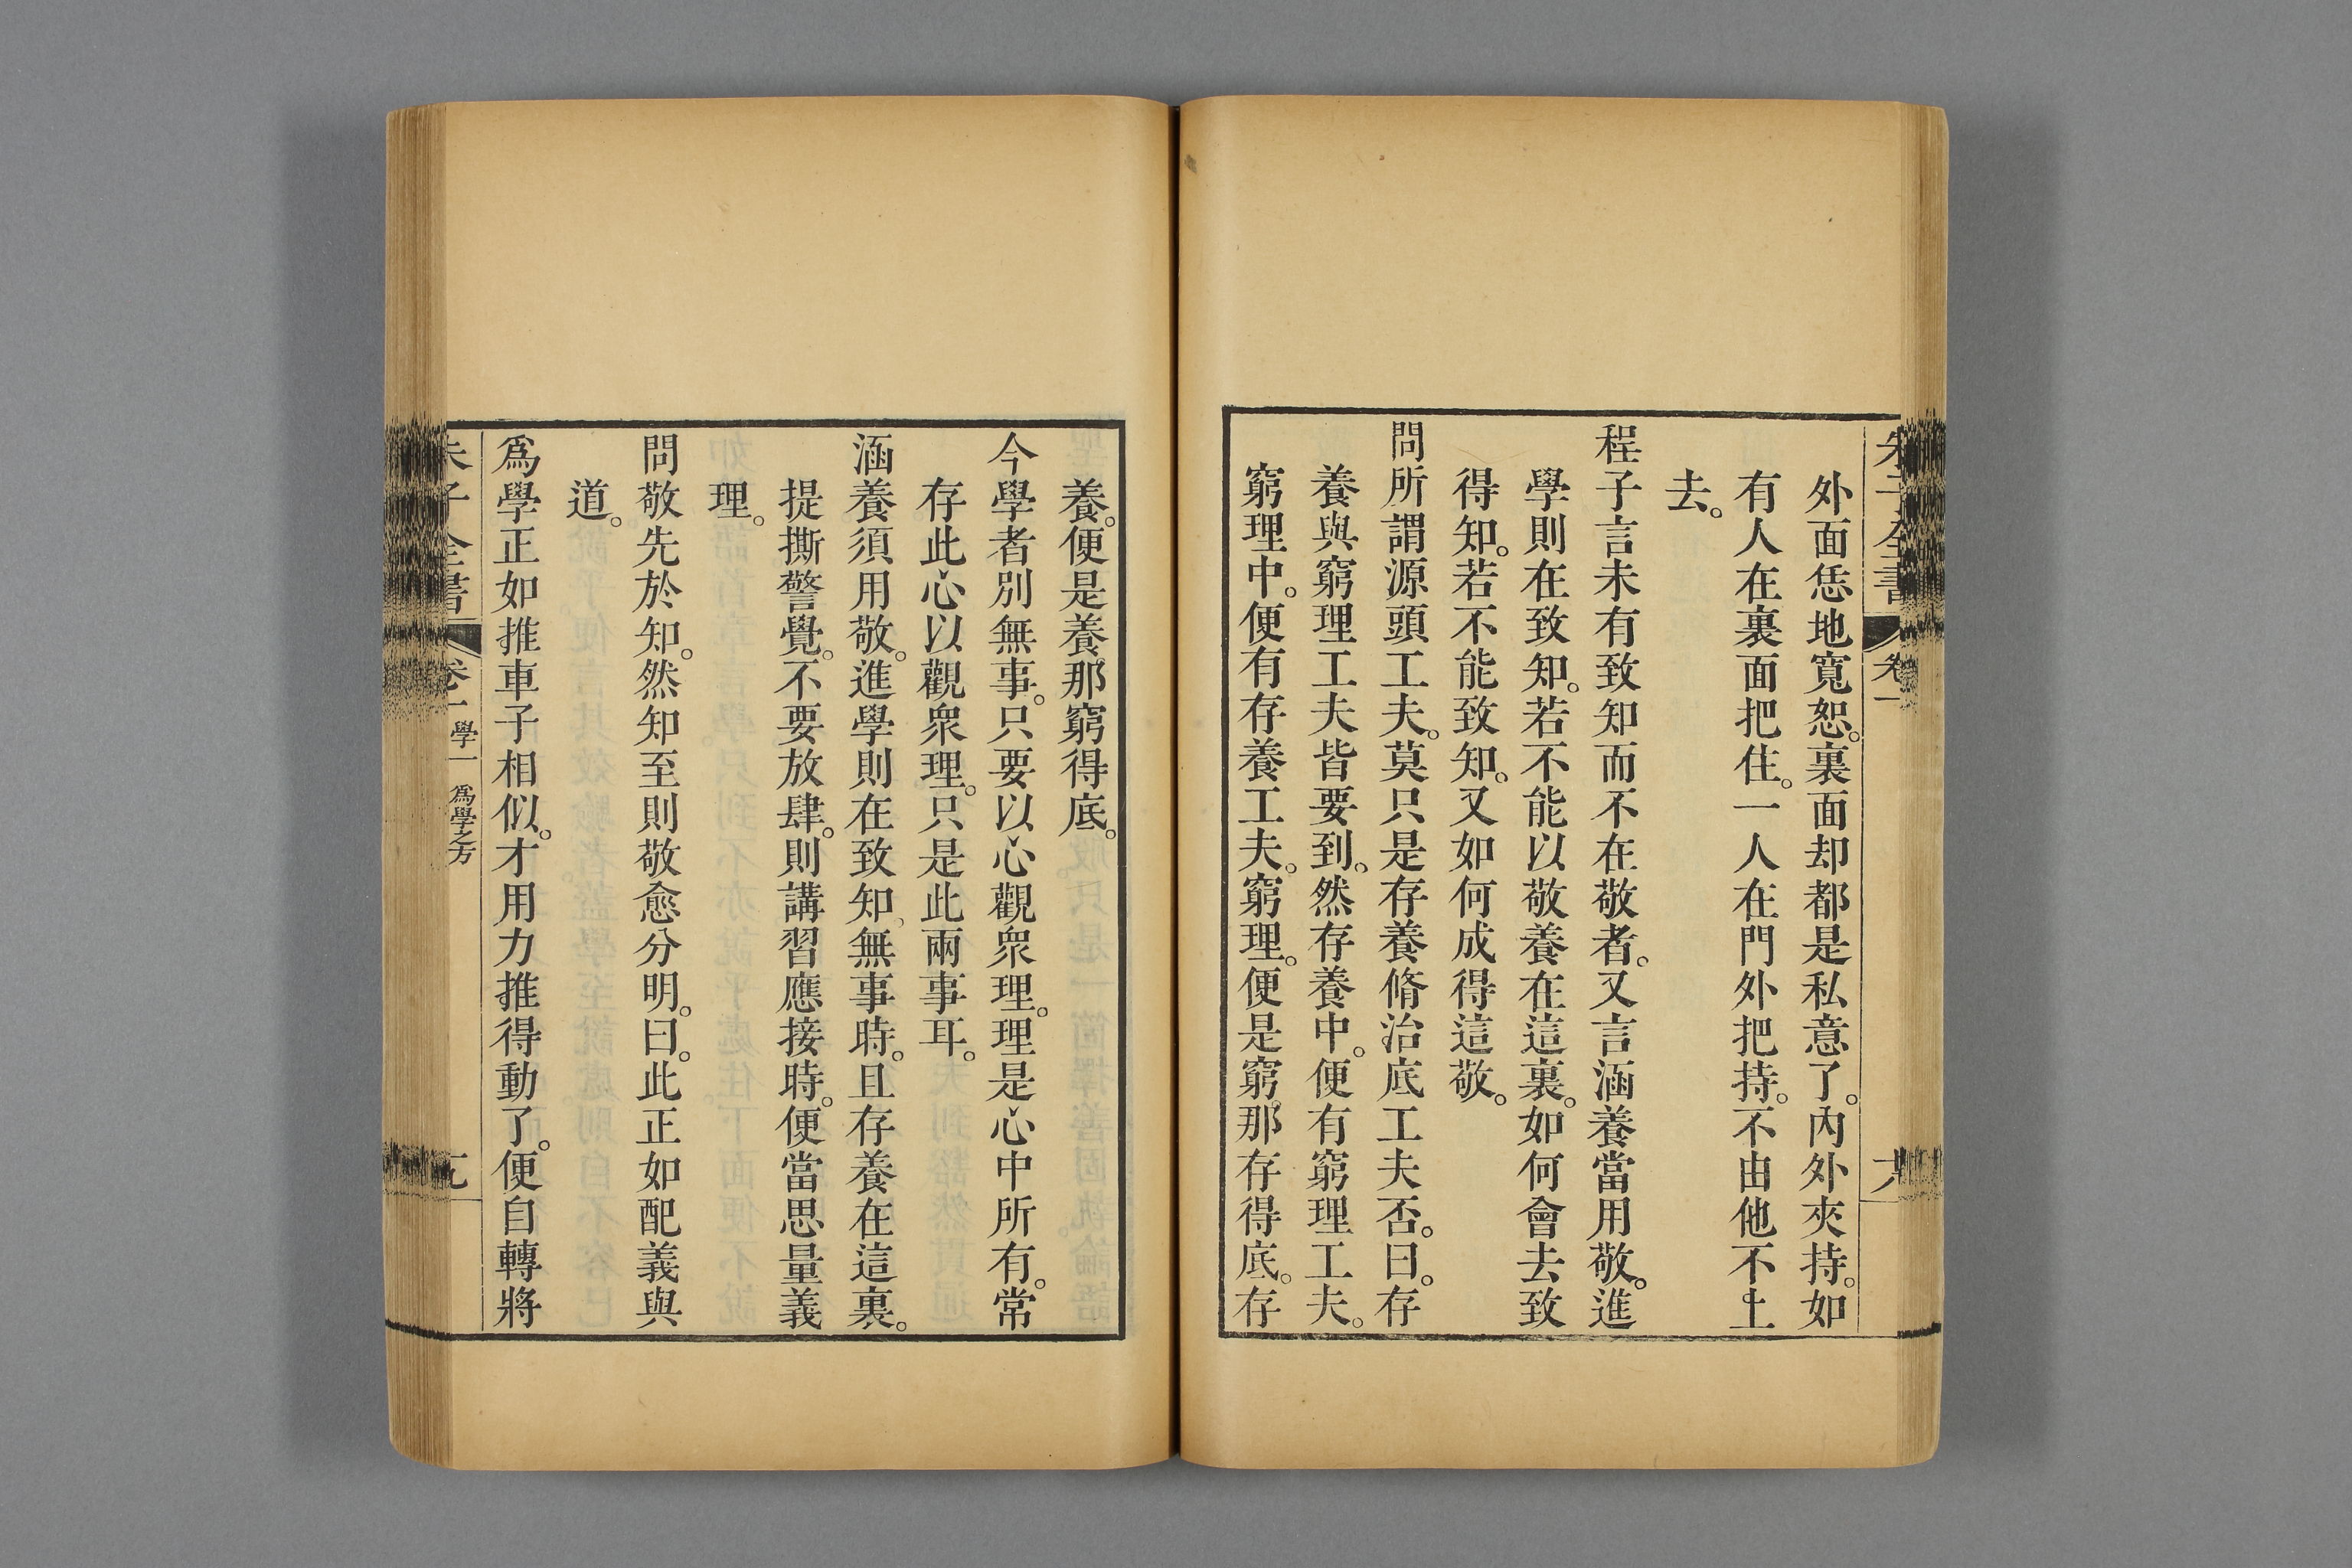 朱子全書 卷一 十八
外面恁地寬恕。裏面却都是私意了。內外夾持。如
有人在裏面把住。一人在門外把持。不由他不上
去。
程子言未有致知而不在敬者。又言涵養當用敬。進
學則在致知。若不能以敬養在這裏。如何會去致
得知。若不能致知。又如何成得這敬。
問所謂源頭工夫。莫只是存養脩治底工夫否。曰。存
養與窮理工夫皆要到。然存養中。便有窮理工夫。
窮理中。便有存養工夫。窮理。便是窮那存得底。存
養。便是養那窮得底。
今學者別無事。只要以心觀衆理。理是心中所有。常
存此心以觀衆理。只是此兩事耳。
涵養須用敬。進學則在致知、無事時。且存養在這裏。
提撕警覺。不要放肆。則講習應接時。便當思量義
理。
問敬先於知。然知至則敬愈分明。曰。此正如配義與
道。
爲學正如推車子相似。才用力推得動了。便自轉將
朱子全書 卷一 學一 爲學之方